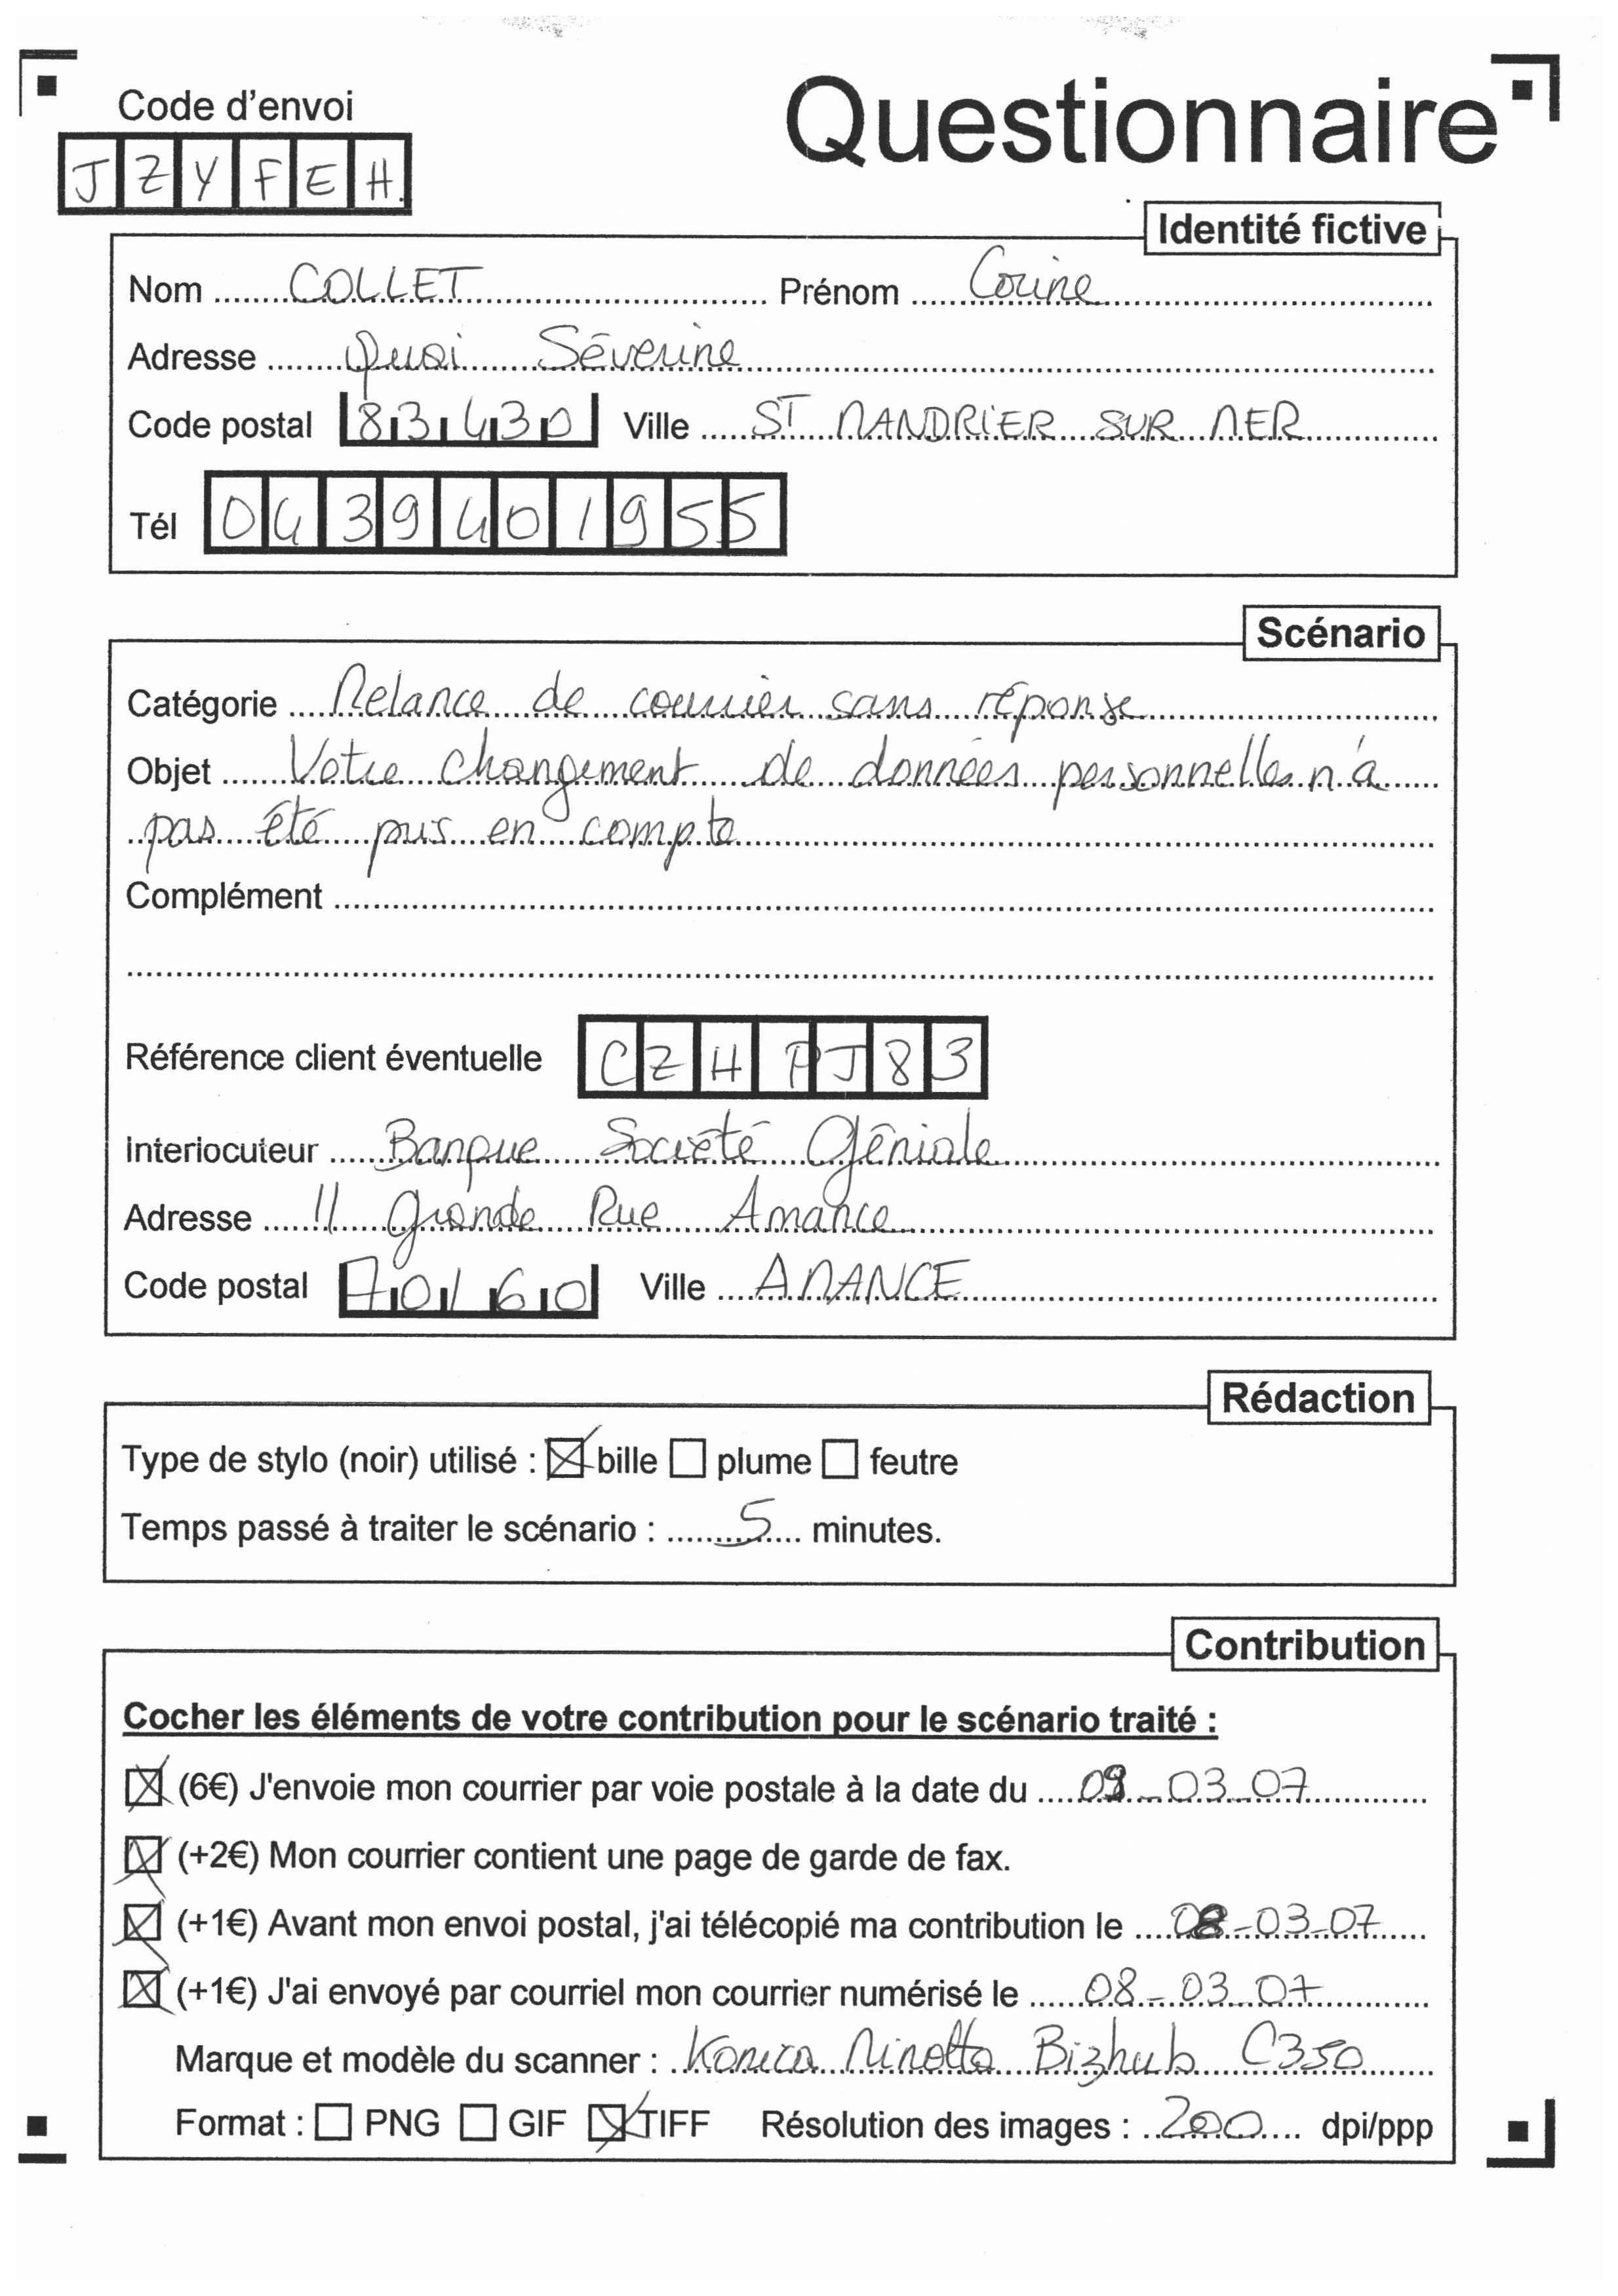 Code d'envoi
Questionnaire
JZYFEH
Identité fictive
Nom COLLET Prénom Corine
Adresse Quai Séverine
Code postal 83430 Ville ST MANDRIER SUR MER
Tél 0439401955
Scénario
Catégorie Relance de courrier sans réponse
Objet Votre changement de données personnelles n'a
pas été pris en compte
Complément
Référence client éventuelle CZHPJ83
Interlocuteur Banque Société Géniale
Adresse 11 Grande Rue Amance
Code postal 70160 Ville AMANCE
Rédaction
Type de stylo (noir) utilisé : bille plume feutre
Temps passé à traiter le scénario : 5 minutes.
Contribution
Cocher les éléments de votre contribution pour le scénario traité :
(6€) J'envoie mon courrier par voie postale à la date du 09-03-07
(+2€) Mon courrier contient une page de garde de fax.
(+1€) Avant mon envoi postal, j'ai télécopié ma contribution le 08-03-07
(+1€) J'ai envoyé par courriel mon courrier numérisé le 08-03 07
Marque et modèle du scanner : Konica Minolta Bizhub C350
Format : PNG GIF TIFF Résolution des images : 200 dpi/ppp